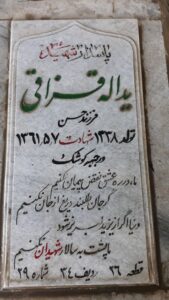 پاسدار شهید
یداله قزاقی
فرزند حسن
تولد ۱۳۳۸ شهادت ۱۳۶۱،۵،۷
در جبهه کوشک
ما در ره عشق نقض پیمان نکنیم
گر جان طلبند دریغ از جان نکنیم
دنیا اگر از یزید لبریز شود
ما پشت به سالار شهیدان نکنیم
قطعه ۲۶ ردیف ۳۴ شماره ۲۹